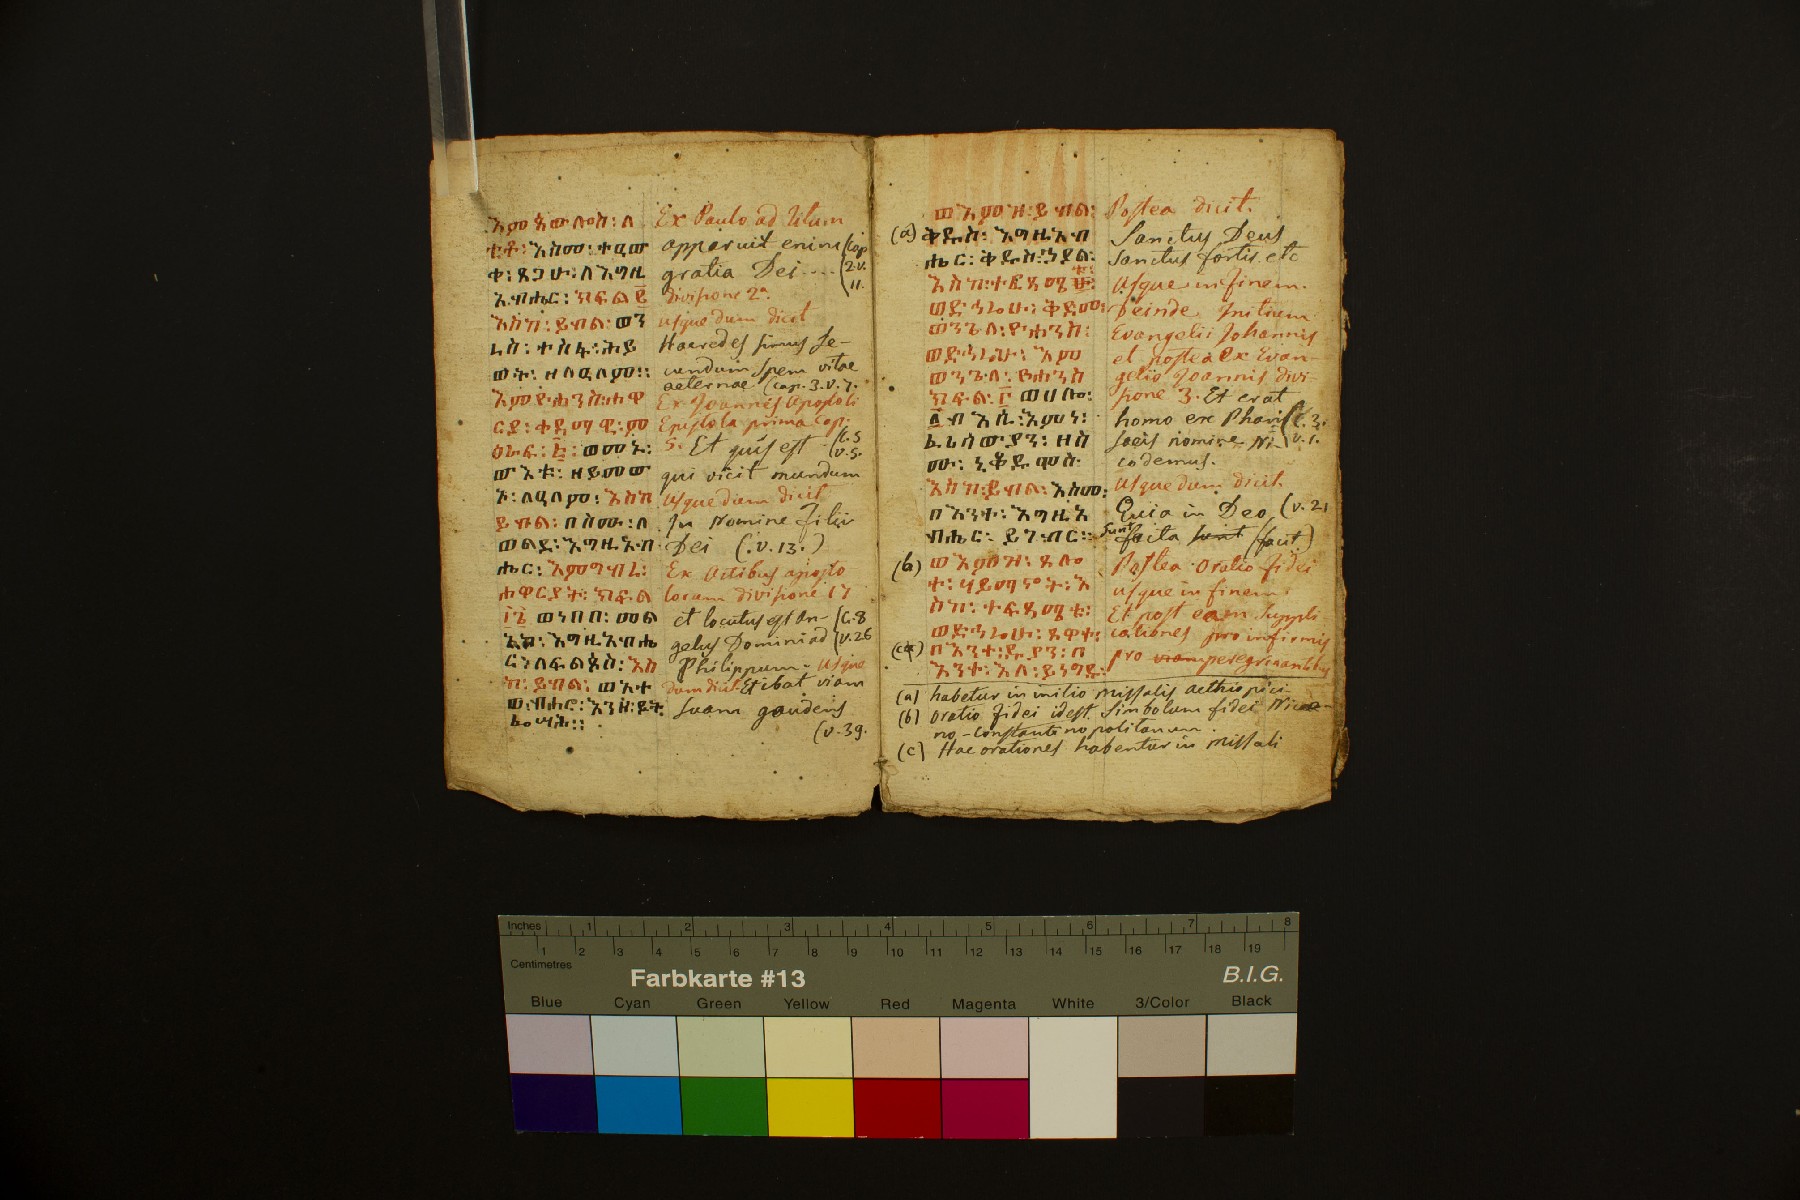 እምጳውሎስ፡ለ
ቲቶ፡እስመ፡ተዐው
ቀ፡ጸጋሁ፡ለእግዚ
አብሔር፡ክፍል፪
እስከ፡ይብል፡ወን
ረስ፡ተስፋ፡ሕይ
ወት፡ዘለዓለም፡፡
እምዮሐንስ፡ሐዋ
ርያ፡ቀዳማዊ፡ም
ዕራፍ፡፭፡ወመኑ፡
ውእቱ፡ዘይመው
ኦ፡ለዓለም፡እስከ
ይብል፡በስሙ፡ለ
ወልደ፡እግዚአብ
ሔር፡እምግብረ፡
ሐዋርያት፡ክፍል
፲፯ ወነበበ፡መል
አከ፡እግዚአብሔ
ርን ለፍልጶስ፡እስ
ከ፡ይብል፡ወአተ
ወ ብሔሮ፡እንዘ፡ይት
ፌሣሕ፡፡
Ex Paulo ad Titum
apparuit enim (Cap
gratia Dei .... 2.v.
11.
divisione 2ª.
usque dum dicit
Haeredes simus se-
cundum Spem vitae
aeternae (cap. 3. v. 7.
Ex Joannis Apostoli
Epistola prima Cap:
5. Et quis est (C. 5
v. 5.
qui vicit mundum
usque dum dicit
In Nomine Filii
Dei (. v. 13. )
Ex Actibus aposto
lorum divisione 17
et locutus est An- (C. 8
gelus Domini ad (v. 26
Philippum - usque
dum dicit Et ibat viam
suam gaudens
(v. 39.
ወእምዝ፡ይብል፡
(a) ቅዱስ፡እግዚአብ
ሔር፡ቅዱስ፡ኃያል፡
እስከ፡ተፈጻሜቱ፡
ወድኅሬሁ፡ቅድመ፡
ወንጌለ፡ዮሐንስ፡
ወድኅሬሁ፡እም
ወንጌለ፡ዮሐንስ
ክፍል፡፫ ወሀሎ፡
፩ብእሲ፡እምነ፡
ፈሪሳውያን፡ዘስ
ሙ፡ኒቆዲሞስ
እስከ፡ይብል፡እስመ፡
በእንተ፡እግዚአ
ብሔር፡ይገብር፡፡
(b) ወእምዝ፡ጸሎ
ተ፡ሃይማኖት፡እ
ስከ፡ተፍጻሜቱ፡
ወድኅሬሁ፡ጸዋተ፡
(c) በእንተ፡ዱያን፡በ
እንተ፡እለ፡ይነግዱ፡
Postea dicit.
Sanctus Deus
Sanctus fortis etc
usque in finem.
Deinde Initium
Evangelii Johannis
et postea ex Evan-
gelio Joannis divi-
sione 3. Et erat
homo ex Phari (C. 3.
saeis nomine Ni- v. 1.
codemus.
usque dum dicit
Quia in Deo (v. 21
sunt facta sunt (facit)
Postea oratio fidei
usque in finem.
Et post eam Suppli
cationes pro infirmis
pro viam peregrinantibus
(a) habetur in initio missalis aethiopici
(b) oratio fidei idest Simbolum fidei Nicae
no-Constantinopolitanum.
(c) Hae orationes habentur in missali
Inches 1 2 3 4 5 6 7 8
1 2 3 4 5 6 7 8 9 10 11 12 13 14 15 16 17 18 19
Centimetres
Farbkarte #13 B.I.G.
Blue Cyan Green Yellow Red Magenta White 3/Color Black